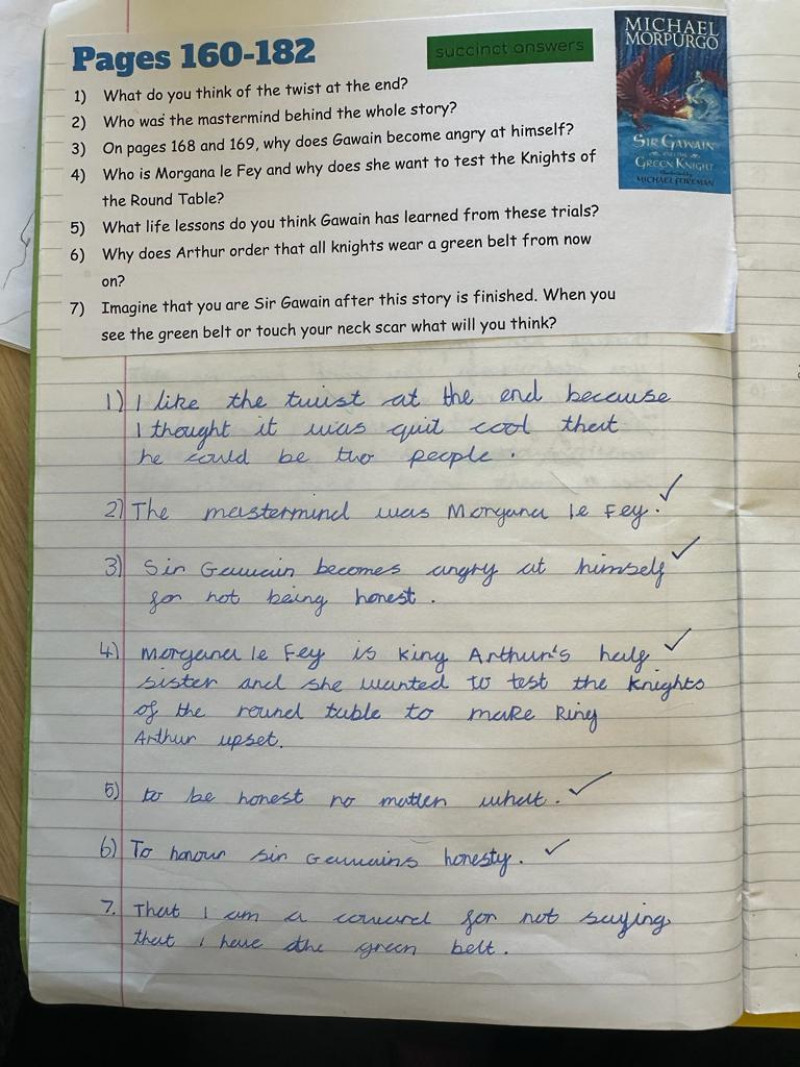 Pages 160-182
succinct answers
MICHAEL
MORPURGO
SIR GAWAIN
AND THE
GREEN KNIGHT
MICHAEL FOREMAN
1) What do you think of the twist at the end?
2) Who was the mastermind behind the whole story?
3) On pages 168 and 169, why does Gawain become angry at himself?
4) Who is Morgana le Fey and why does she want to test the Knights of
the Round Table?
5) What life lessons do you think Gawain has learned from these trials?
6) Why does Arthur order that all knights wear a green belt from now
on?
7) Imagine that you are Sir Gawain after this story is finished. When you
see the green belt or touch your neck scar what will you think?
1) I like the twist at the end because
I thought it was quit cool that
he could be two people.
2) The mastermind was Morgana le Fey.
3) Sir Gawain becomes angry at himself
for not being honest.
4) Morgana le Fey is king Arthur's half
sister and she wanted to test the knights
of the round table to make King
Arthur upset.
5) to be honest no matter what.
6) To honour sir Gawains honesty.
7. That I am a coward for not saying
that i have the green belt.